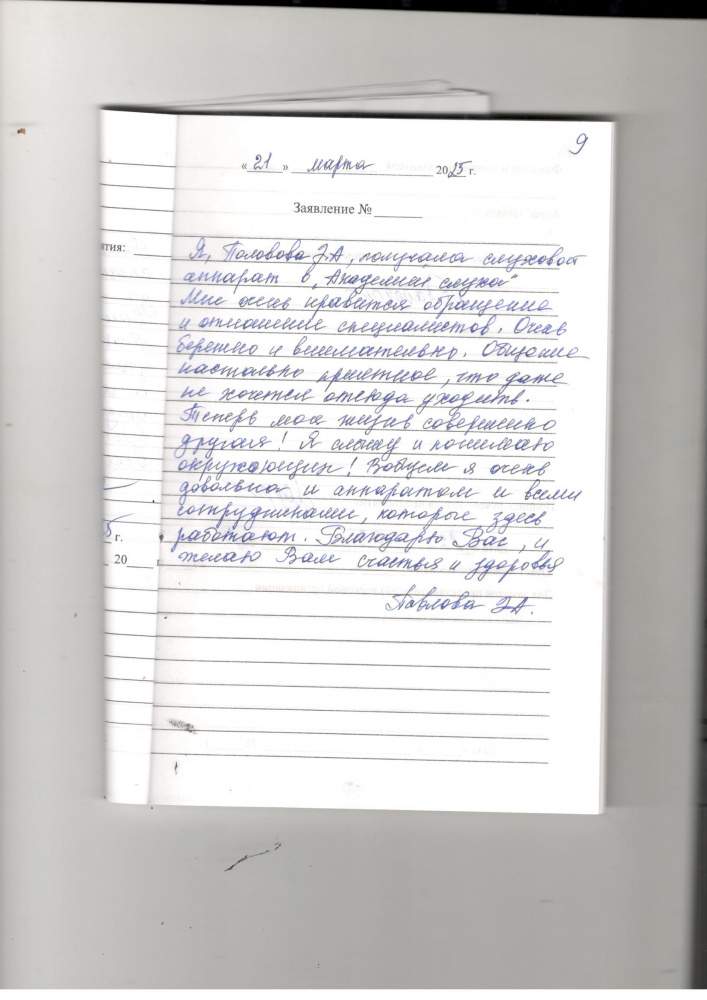 9
«21» марта 2025 г.
Заявление №
ятия:
Я, Половова З.А, получала слуховой
аппарат в „Академии слуха"
Мне очень нравится обращение
и отношение специалистов. Очень
бережно и внимательно. Общение
настолько приятное, что даже
не хочется отсюда уходить.
Теперь моя жизнь совершенно
другая! Я слышу и понимаю
окружающих! Вобщем я очень
довольна и аппаратом и всеми
сотрудниками, которые здесь
5 г.
работают. Благодарю Вас, и
20
желаю Вам счастья и здоровья
Павлова З.А.